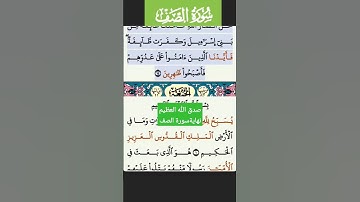 سُورَةُ الصَّفِّ
بَنِي إِسْرَٰٓءِيلَ وَكَفَرَت طَّآئِفَةٌ
فَأَيَّدْنَا ٱلَّذِينَ ءَامَنُوا۟ عَلَىٰ عَدُوِّهِمْ
فَأَصْبَحُوا۟ ظَٰهِرِينَ
صدق الله العظيم
نهاية سورة الصف
يُسَبِّحُ لِلَّهِ وَمَا فِي
ٱلْأَرْضِ ٱلْمَلِكِ ٱلْقُدُّوسِ ٱلْعَزِيزِ
ٱلْحَكِيمِ هُوَ ٱلَّذِي بَعَثَ فِي